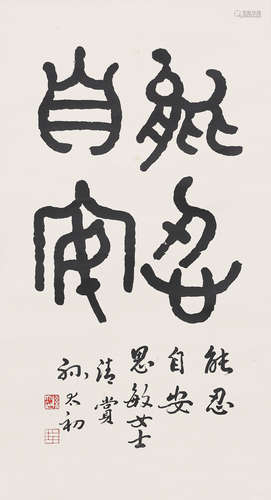 能忍
自安
能忍
自安
思敏女士
清賞
孫太初